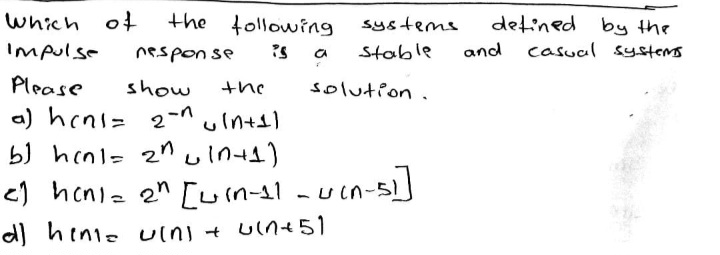 Which of the following systems defined by the
Impulse response is a stable and casual systems
Please show the solution.
a) h[n]= 2^-n u[n+1]
b) h[n]= 2^n u[n+1)
c) h[n]= 2^n [u[n-1] - u[n-5]]
d) h[n]= u[n] + u[n+5]